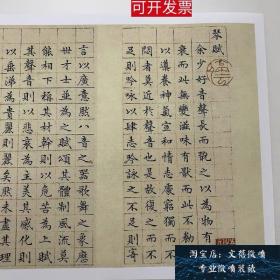 可开发票
琴賦
余少好音聲長而翫之以為物有
衰而此無變滋味有猒而此不
以導養神氣宣和情志處窮獨而不
悶者莫近於音聲也是故復之而不
足則吟詠以肆志吟詠之不足則
言以廣意然八音之器歌舞之象歷
世才士並為之賦頌其體制風流莫
相襲稱其材幹則以危苦為上賦
其聲音則以悲哀為主美其感化則
以垂涕為貴麗則麗矣然未盡其理
淘宝店:文蓓微喷
专业微喷装裱